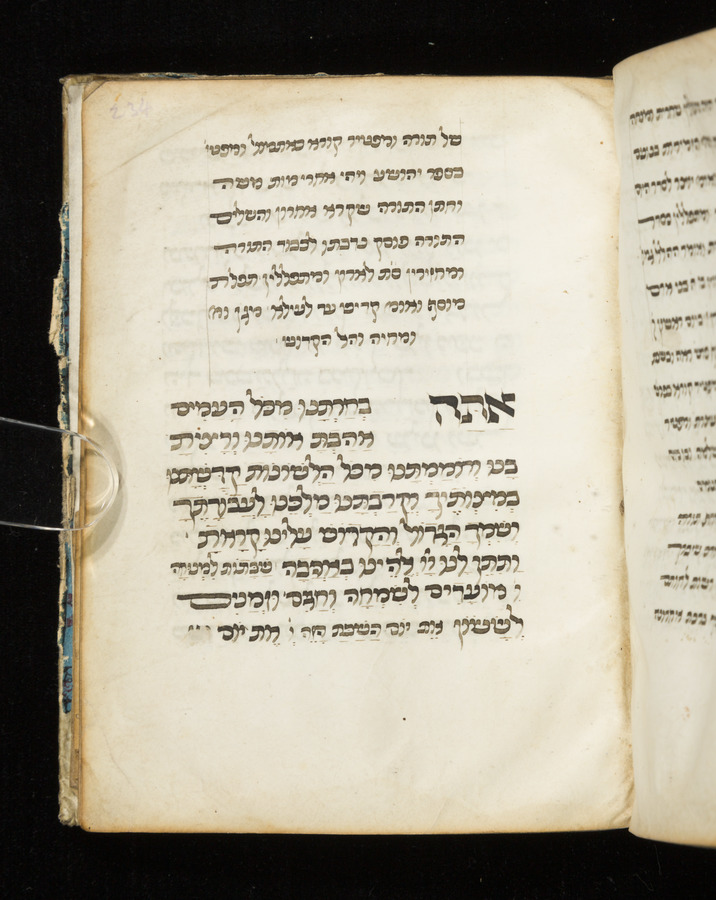 של תורה ומפטיר קורא כאתמול ומפטי׳
בספר יהושע ויהי אחרי מות משה
וחתן התורה שקרא אחרון והשלים
התורה פוסק נדבתו לכבוד התורה
ומחזירין ס׳ת לארון ומתפללין תפלת
מוסף ואומ׳ קדיש עד לעילא מגן
ומחיה והאל הקדוש
אתה בחרתנו מכל העמים
אהבת אותנו ורצית
בנו ורוממתנו מכל הלשונות קדשתנו
במצותיך וקרבתנו מלכנו לעבודתך
ושמך הגדול והקדוש עלינו קראת
ותתן לנו יי׳ אלהינו באהבה שבתות למנוחה
ו מועדים לשמחה חגים וזמנים
לששון את יום השבת הזה ו ואת יום